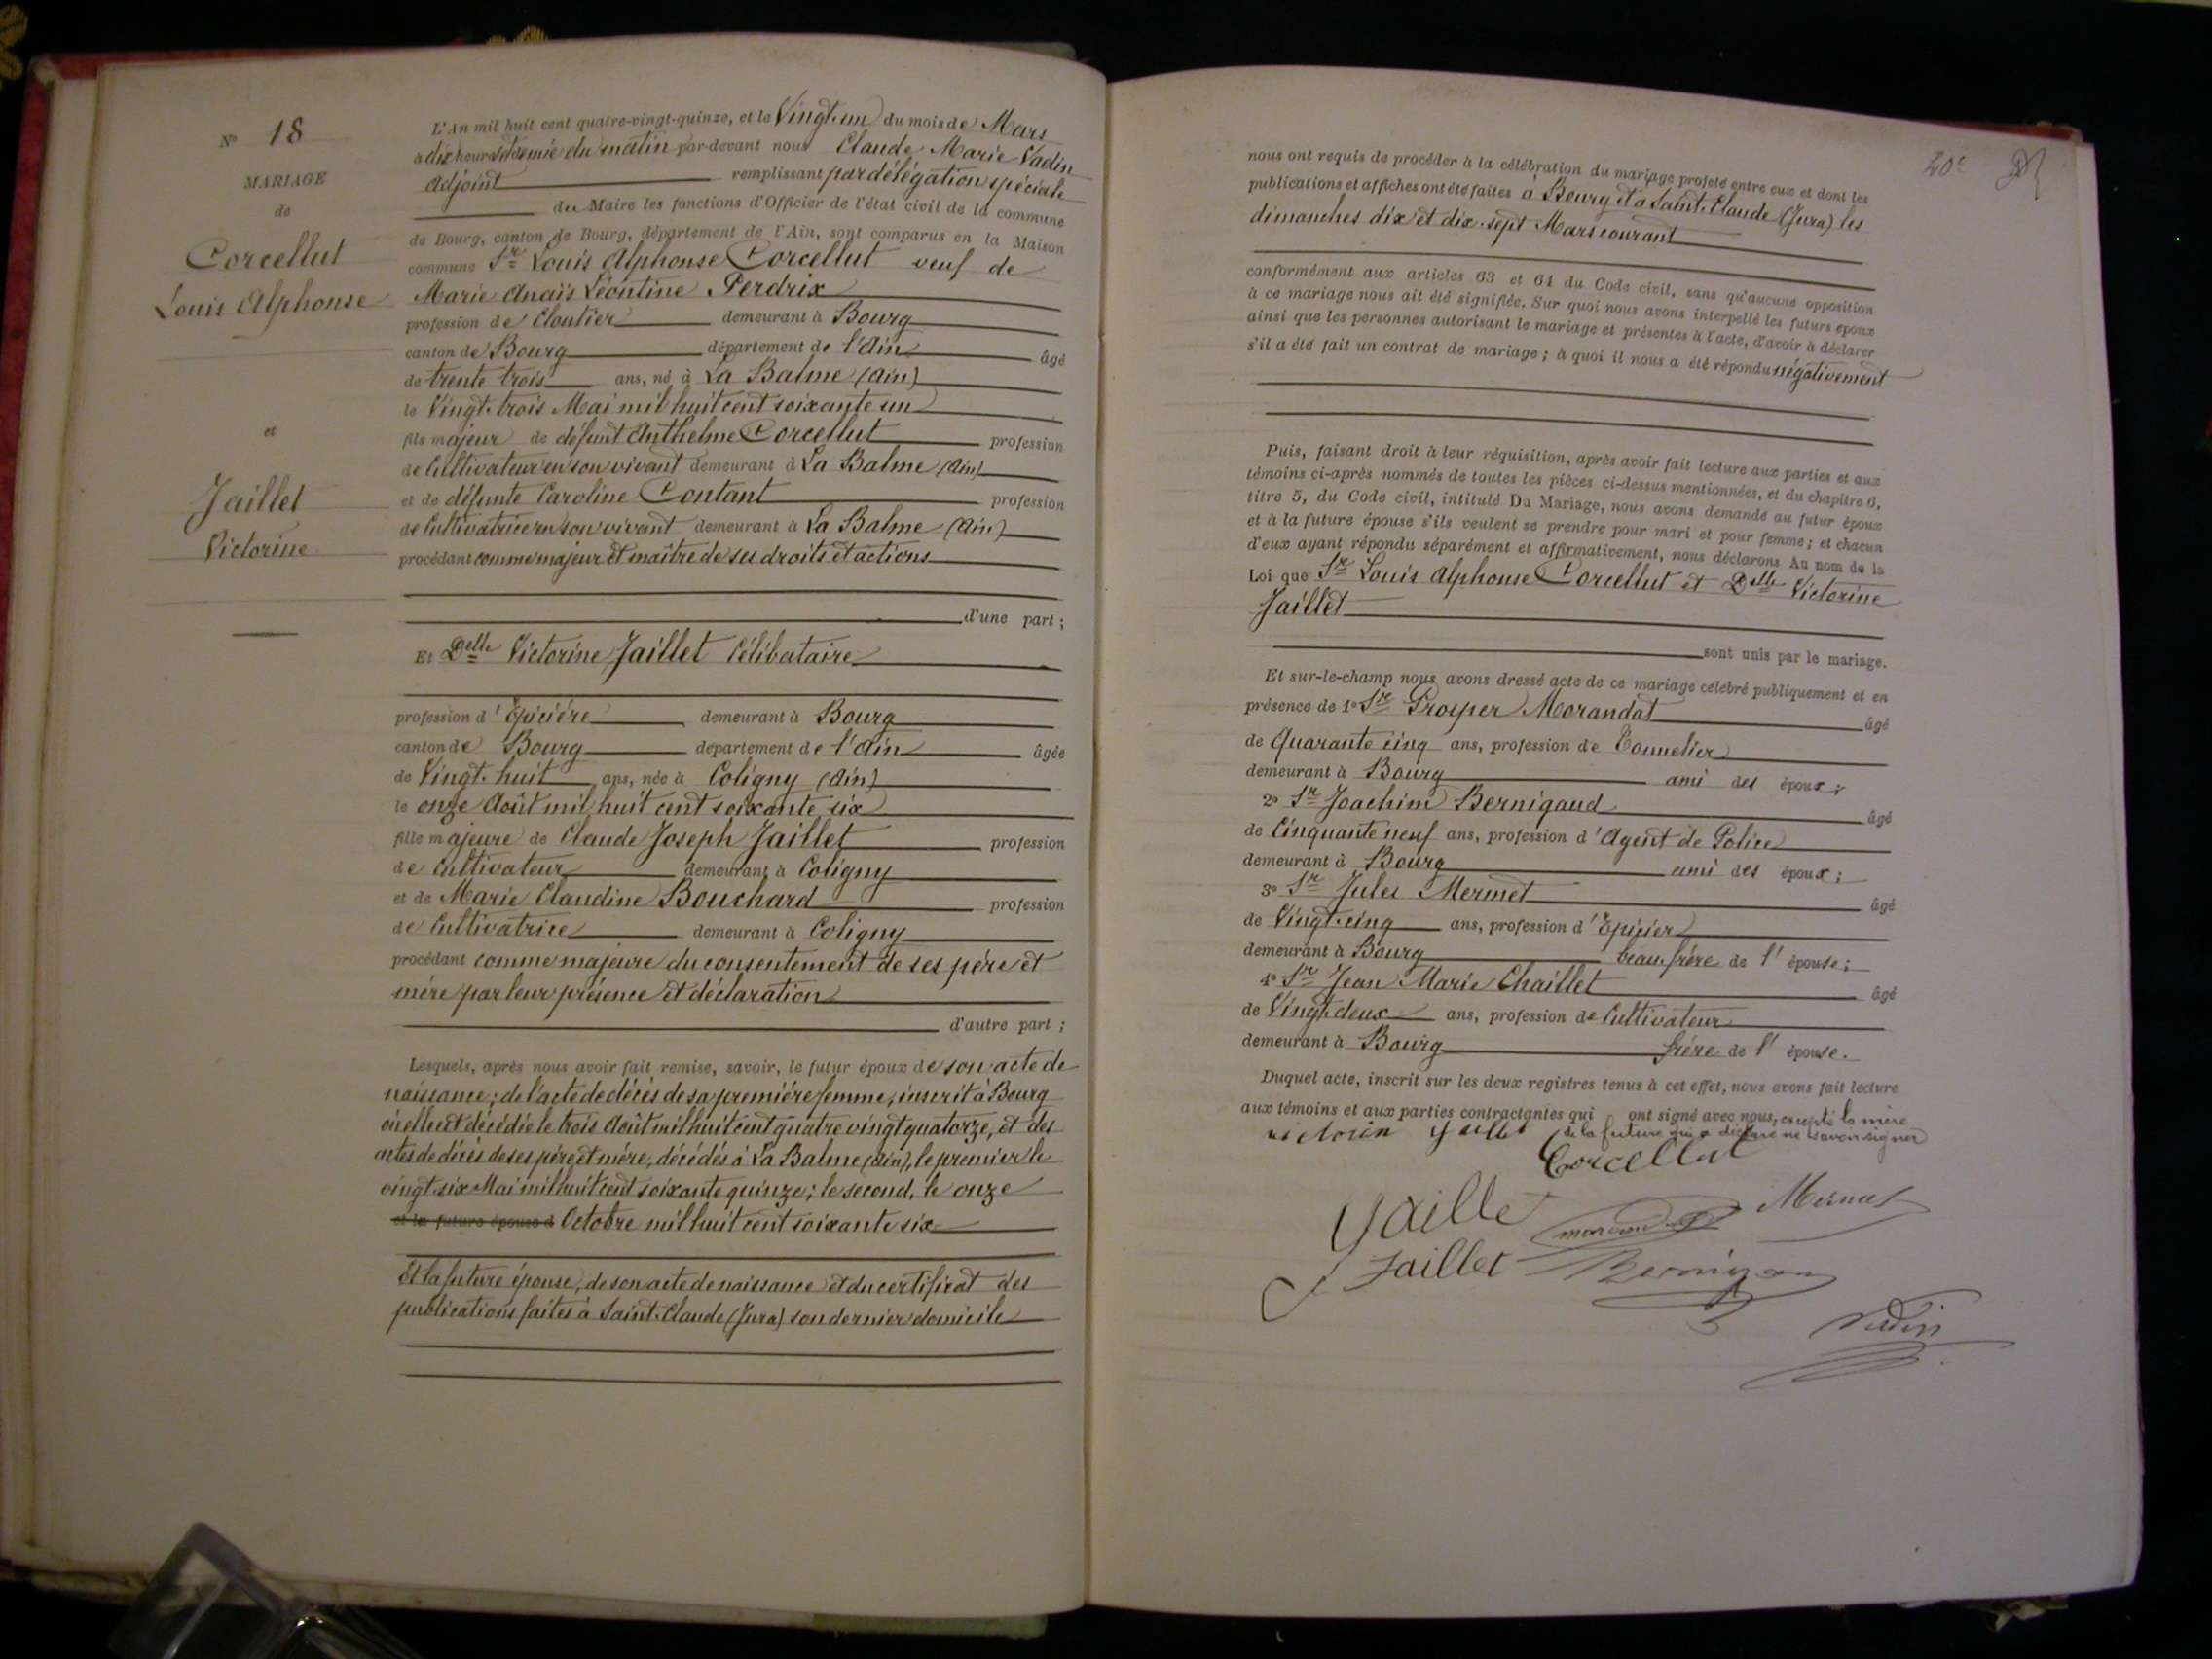 N° 18
MARIAGE
de
Corcellut
Louis Alphonse
et
Jaillet
Victorine
L'An mil huit cent quatre-vingt-quinze, et le Vingt-un du mois de Mars
à dix heures et demie du matin par-devant nous Claude Marie Vadin
Adjoint remplissant par délégation spéciale
du Maire les fonctions d'Officier de l'état civil de la commune
de Bourg, canton de Bourg, département de l'Ain, sont comparus en la Maison
commune Sr Louis Alphonse Corcellut veuf de
Marie Anaïs Léontine Perdrix
profession de Cloutier demeurant à Bourg
canton de Bourg département de l'Ain âgé
de trente trois ans, né à La Balme (Ain)
le Vingt-trois Mai mil huit cent soixante un
fils majeur de défunt Anthelme Corcellut profession
de Cultivateur en son vivant demeurant à La Balme (Ain)
et de défunte Caroline Contant profession
de Cultivatrice en son vivant demeurant à La Balme (Ain)
procédant comme majeur et maître de ses droits et actions
d'une part ;
Et Delle Victorine Jaillet Célibataire
profession d'Epicière demeurant à Bourg
canton de Bourg département de l'Ain âgée
de Vingt-huit ans, née à Coligny (Ain)
le onze Août mil huit cent soixante six
fille majeure de Claude Joseph Jaillet profession
de Cultivateur demeurant à Coligny
et de Marie Claudine Bouchard profession
de Cultivatrice demeurant à Coligny
procédant comme majeure du consentement de ses père et
mère par leur présence et déclaration
d'autre part ;
Lesquels, après nous avoir fait remise, savoir, le futur époux de son acte de
naissance ; de l'acte de décès de sa première femme, inscrit à Bourg
où elle est décédée le trois Août mil huit cent quatre vingt quatorze, et des
actes de décès de ses père et mère, décédés à La Balme (Ain), le premier le
vingt-six Mai mil huit cent soixante quinze ; le second, le onze
et la future épouse d Octobre mil huit cent soixante six
Et la future épouse, de son acte de naissance et du certificat des
publications faites à Saint-Claude (Jura) son dernier domicile
20e
nous ont requis de procéder à la célébration du mariage projeté entre eux et dont les
publications et affiches ont été faites à Bourg et à Saint-Claude (Jura) les
dimanches dix et dix-sept Mars courant
conformément aux articles 63 et 64 du Code civil, sans qu'aucune opposition
à ce mariage nous ait été signifiée. Sur quoi nous avons interpellé les futurs époux
ainsi que les personnes autorisant le mariage et présentes à l'acte, d'avoir à déclarer
s'il a été fait un contrat de mariage ; à quoi il nous a été répondu négativement
Puis, faisant droit à leur réquisition, après avoir fait lecture aux parties et aux
témoins ci-après nommés de toutes les pièces ci-dessus mentionnées, et du chapitre 6,
titre 5, du Code civil, intitulé Du Mariage, nous avons demandé au futur époux
et à la future épouse s'ils veulent se prendre pour mari et pour femme ; et chacun
d'eux ayant répondu séparément et affirmativement, nous déclarons Au nom de la
Loi que Sr Louis Alphonse Corcellut et Delle Victorine
Jaillet
sont unis par le mariage.
Et sur-le-champ nous avons dressé acte de ce mariage célébré publiquement et en
présence de 1° Sr Prosper Morandat âgé
de Quarante cinq ans, profession de Tonnelier
demeurant à Bourg ami des époux ;
2° Sr Joachim Bernigaud âgé
de Cinquante neuf ans, profession d'Agent de Police
demeurant à Bourg ami des époux ;
3° Sr Jules Mermet âgé
de Vingt-cinq ans, profession d'Epicier
demeurant à Bourg beau-frère de l'épouse ;
4° Sr Jean Marie Chaillet âgé
de Vingt deux ans, profession de Cultivateur
demeurant à Bourg frère de l'épouse.
Duquel acte, inscrit sur les deux registres tenus à cet effet, nous avons fait lecture
aux témoins et aux parties contractantes qui ont signé avec nous, excepté la mère
de la future qui a déclaré ne savoir signer
victorin Jaillet
Corcellut
Jaille Mermet
Jaillet
Vadin